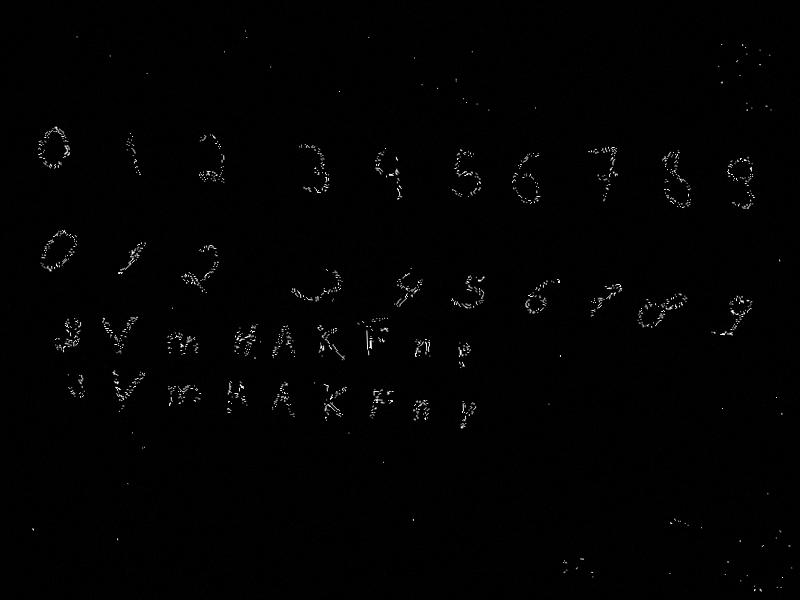 0 1 2 3 4 5 6 7 8 9
0 1 2 3 4 5 6 7 8 9
Y m H A K F n p
Y m H A K F n p